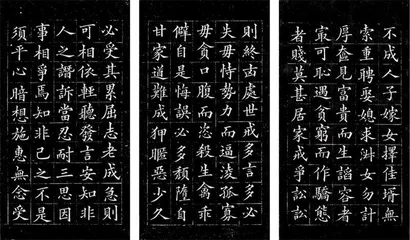 不成人子嫁女擇佳壻無
索重聘娶媳求淑女勿計
厚奩見富貴而生諂容者
㝡可恥遇貧窮而作驕態
者賤莫甚居家戒爭訟訟
則終凶處世戒多言多必
失毋恃勢力而逼淩孤寡
毋貪口腹而恣殺生禽乖
僻自是悔誤必多頹墮自
甘家道難成狎暱惡少久
必受其累屈志老成急則
可相依輕聽發言安知非
人之譖訴當忍耐三思因
事相爭焉知非己之不是
須平心暗想施惠無念受